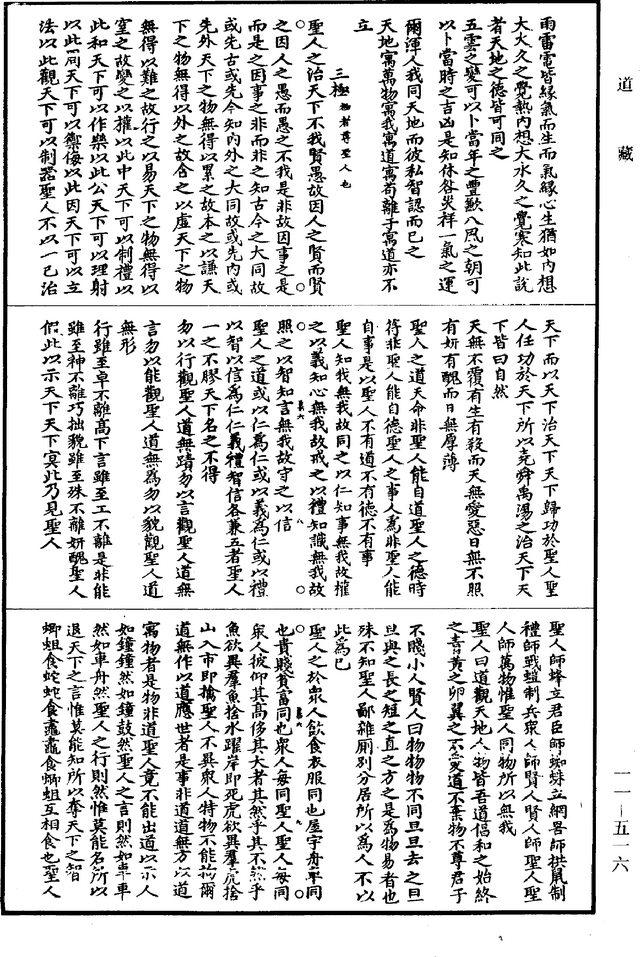 道藏
雨雷電皆緣氣而生而氣緣心生猶如內想
大火久之覺熱內想大水久之覺寒知此說
者天地之德皆可同之
五雲之變可以卜當年之豐歉八風之朝可
以卜當時之吉凶是知休咎災祥一氣之運
爾渾人我同天地而彼私智認而已之
天地寓萬物寓我寓道寓苟離于寓道亦不
立
三極物者尊聖人也
聖人之治天下不我賢愚故因人之賢而賢
之因人之愚而愚之不我是非故因事之是
而是之因事之非而非之知古今之大同故
或先古或先今知內外之大同故或先內或
先外天下之物無得以累之故本之以謙天
下之物無得以外之故含之以虛天下之物
無得以難之故行之以易天下之物無得以
窒之故變之以權以此中天下可以制禮以
此和天下可以作樂以此公天下可以理財
以此周天下可以禦侮以此因天下可以立
法以此觀天下可以制器聖人不以一己治
天下而以天下治天下天下歸功於聖人聖
人任功於天下所以堯舜禹湯之治天下天
下皆曰自然
天無不覆有生有殺而天無愛惡日無不照
有妍有醜而日無厚薄
聖人之道天命非聖人能自道聖人之德時
符非聖人能自德聖人之事人為非聖人能
自事是以聖人不有道不有德不有事
聖人知我無我故同之以仁知事無我故權
之以義知心無我故戒之以禮知識無我故
照之以智知言無我故守之以信
聖人之道或以仁為仁或以義為仁或以禮
以智以信為仁仁義禮智信各兼五者聖人
一之不膠天下名之不得
勿以行觀聖人道無蹟勿以言觀聖人道無
言勿以能觀聖人道無為勿以貌觀聖人道
無形
行雖至卓不離高下言雖至工不離是非能
雖至神不離巧拙貌雖至殊不離妍醜聖人
假此以示天下天下冥此乃見聖人
聖人師蜂立君臣師蜘蛛立網罟師拱鼠制
禮師戰蟻制兵衆人師賢人賢人師聖人聖
人師萬物惟聖人同物所以無我
聖人曰道觀天地人物皆吾道倡和之始終
之青黃之卵翼之不愛道不棄物不尊君子
不賤小人賢人曰物物物不同旦旦去之旦
旦與之長之短之直之方之是為物易者也
殊不知聖人鄙雜廁別分居所以為人不以
此為己
聖人之於衆人飲食衣服同也屋宇舟車同
也貴賤貧富同也衆人每同聖人聖人每同
衆人彼仰其高侈其大者其然乎其不然乎
魚欲異羣魚捨水躍岸即死虎欲異羣虎捨
山入市即擒聖人不異衆人特物不能拘爾
道無作以道應世者是事非道道無方以道
寓物者是物非道聖人竟不能出道以示人
如鐘鐘然如鐘鼓然聖人之言則然如車車
然如車舟然聖人之行則然惟莫能名所以
退天下之言惟莫能知所以奪天下之智
蝍蛆食蛇蛇食鼃鼃食蝍蛆互相食也聖人
一一—五一六